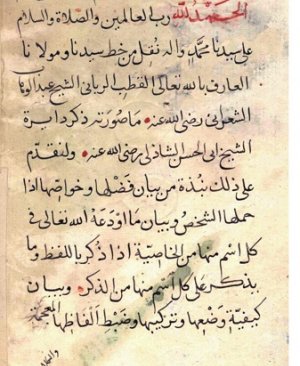 الحمد لله رب العالمين والصلاة والسلام
على سيدنا محمد واله نقل من خط سيدنا ومولانا
العارف بالله تعالى القطب الرباني الشيخ عبد الوهاب
الشعراني رضي الله عنه ماصورته ذكر دايرة
الشيخ ابي الحسن الشاذلى رضي الله عنه ولنقدم
على ذلك نبذة من بيان فضلها وخواصها اذا
حملها الشخص وبيان ما اودعه الله تعالى في
كل اسم منها من الخاصية اذا ذكر باللفظ وما
يذكر على كل اسم منها من الذكر وبيان
كيفية وضعها وتركيبها وضبط الفاظها المعجمة